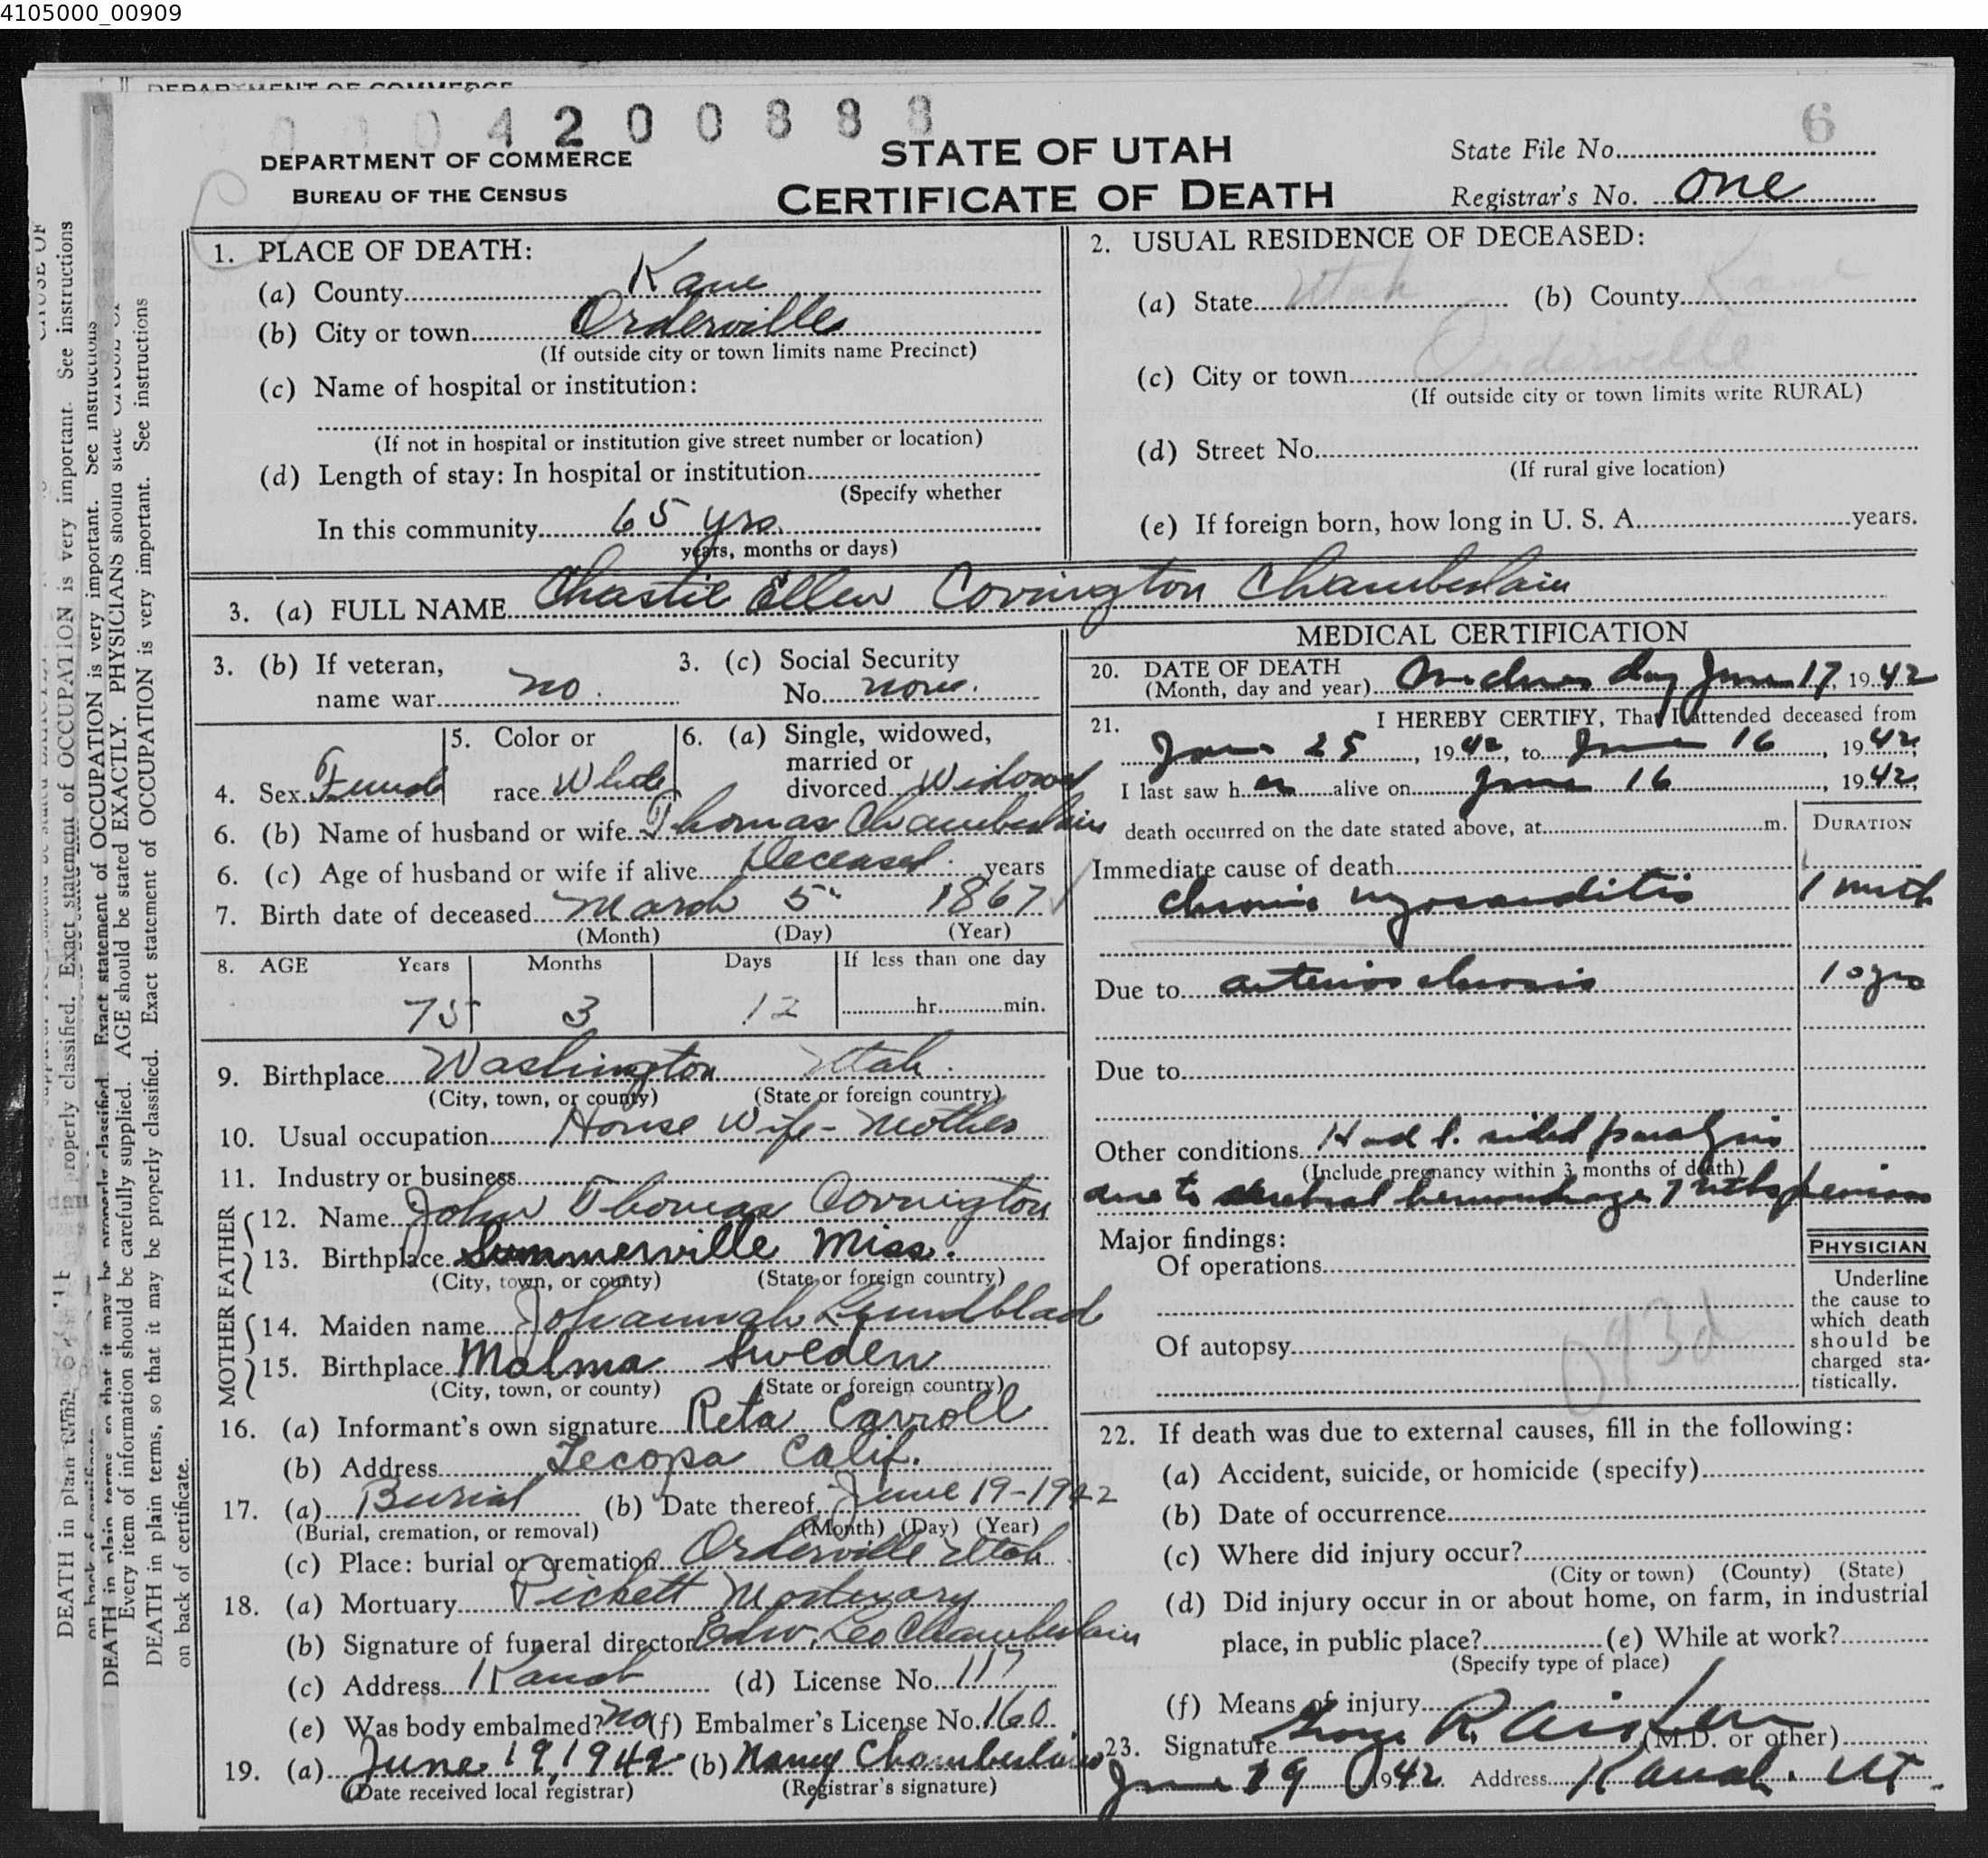 4105000_00909
DEPARTMENT OF COMMERCE
4 2 0 0 8 8 8
6
DEPARTMENT OF COMMERCE
BUREAU OF THE CENSUS
STATE OF UTAH
CERTIFICATE OF DEATH
State File No.
Registrar's No. one
1. PLACE OF DEATH:
(a) County Kane
(b) City or town Orderville
(If outside city or town limits name Precinct)
(c) Name of hospital or institution:
(If not in hospital or institution give street number or location)
(d) Length of stay: In hospital or institution
(Specify whether
In this community 65 yrs.
years, months or days)
2. USUAL RESIDENCE OF DECEASED:
(a) State Utah (b) County Kane
(c) City or town Orderville
(If outside city or town limits write RURAL)
(d) Street No.
(If rural give location)
(e) If foreign born, how long in U. S. A. years.
3. (a) FULL NAME Chastie Ellen Covington Chamberlain
3. (b) If veteran, name war no.
3. (c) Social Security No. none.
4. Sex Female
5. Color or race White
6. (a) Single, widowed, married or divorced Widowed
6. (b) Name of husband or wife Thomas Chamberlain
6. (c) Age of husband or wife if alive Deceased. years
7. Birth date of deceased March 5 1867
(Month) (Day) (Year)
8. AGE Years Months Days If less than one day
75 3 12 hr. min.
9. Birthplace Washington Utah.
(City, town, or county) (State or foreign country)
10. Usual occupation House Wife - Mother
11. Industry or business
FATHER
12. Name John Thomas Covington
13. Birthplace Summerville Miss.
(City, town, or county) (State or foreign country)
MOTHER
14. Maiden name Johannah Lundblad
15. Birthplace Malma Sweden
(City, town, or county) (State or foreign country)
16. (a) Informant's own signature Reta Carroll
(b) Address Tecopa Calif.
17. (a) Burial (b) Date thereof June 19-1942
(Burial, cremation, or removal) (Month) (Day) (Year)
(c) Place: burial or cremation Orderville Utah.
18. (a) Mortuary Pickett Mortuary
(b) Signature of funeral director Edw. Leo Chamberlain
(c) Address Kanab (d) License No. 117
(e) Was body embalmed? No (f) Embalmer's License No. 160.
19. (a) June 19, 1942 (b) Nancy Chamberlain
(Date received local registrar) (Registrar's signature)
MEDICAL CERTIFICATION
20. DATE OF DEATH
(Month, day and year) Wednesday June 17, 1942
21. I HEREBY CERTIFY, That I attended deceased from
25, 1942, to June 16, 1942,
I last saw her alive on June 16, 1942,
death occurred on the date stated above, at m.
DURATION
Immediate cause of death
chronic myocarditis 1 mnth
Due to arteriosclerosis 10 yrs
Due to
Other conditions Had l. sided paralysis
(Include pregnancy within 3 months of death)
due to cerebral hemorrhage 7 mths previous
Major findings:
Of operations
Of autopsy
093d
PHYSICIAN
Underline
the cause to
which death
should be
charged sta-
tistically.
22. If death was due to external causes, fill in the following:
(a) Accident, suicide, or homicide (specify)
(b) Date of occurrence
(c) Where did injury occur?
(City or town) (County) (State)
(d) Did injury occur in or about home, on farm, in industrial
place, in public place? (e) While at work?
(Specify type of place)
(f) Means of injury
23. Signature George R. Aiken (M.D. or other)
June 19 1942. Address Kanab. Ut.
Every item of information should be carefully supplied. AGE should be stated EXACTLY. PHYSICIANS should state
DEATH in plain terms, so that it may be properly classified. Exact statement of OCCUPATION is very important. See instructions
on back of certificate.